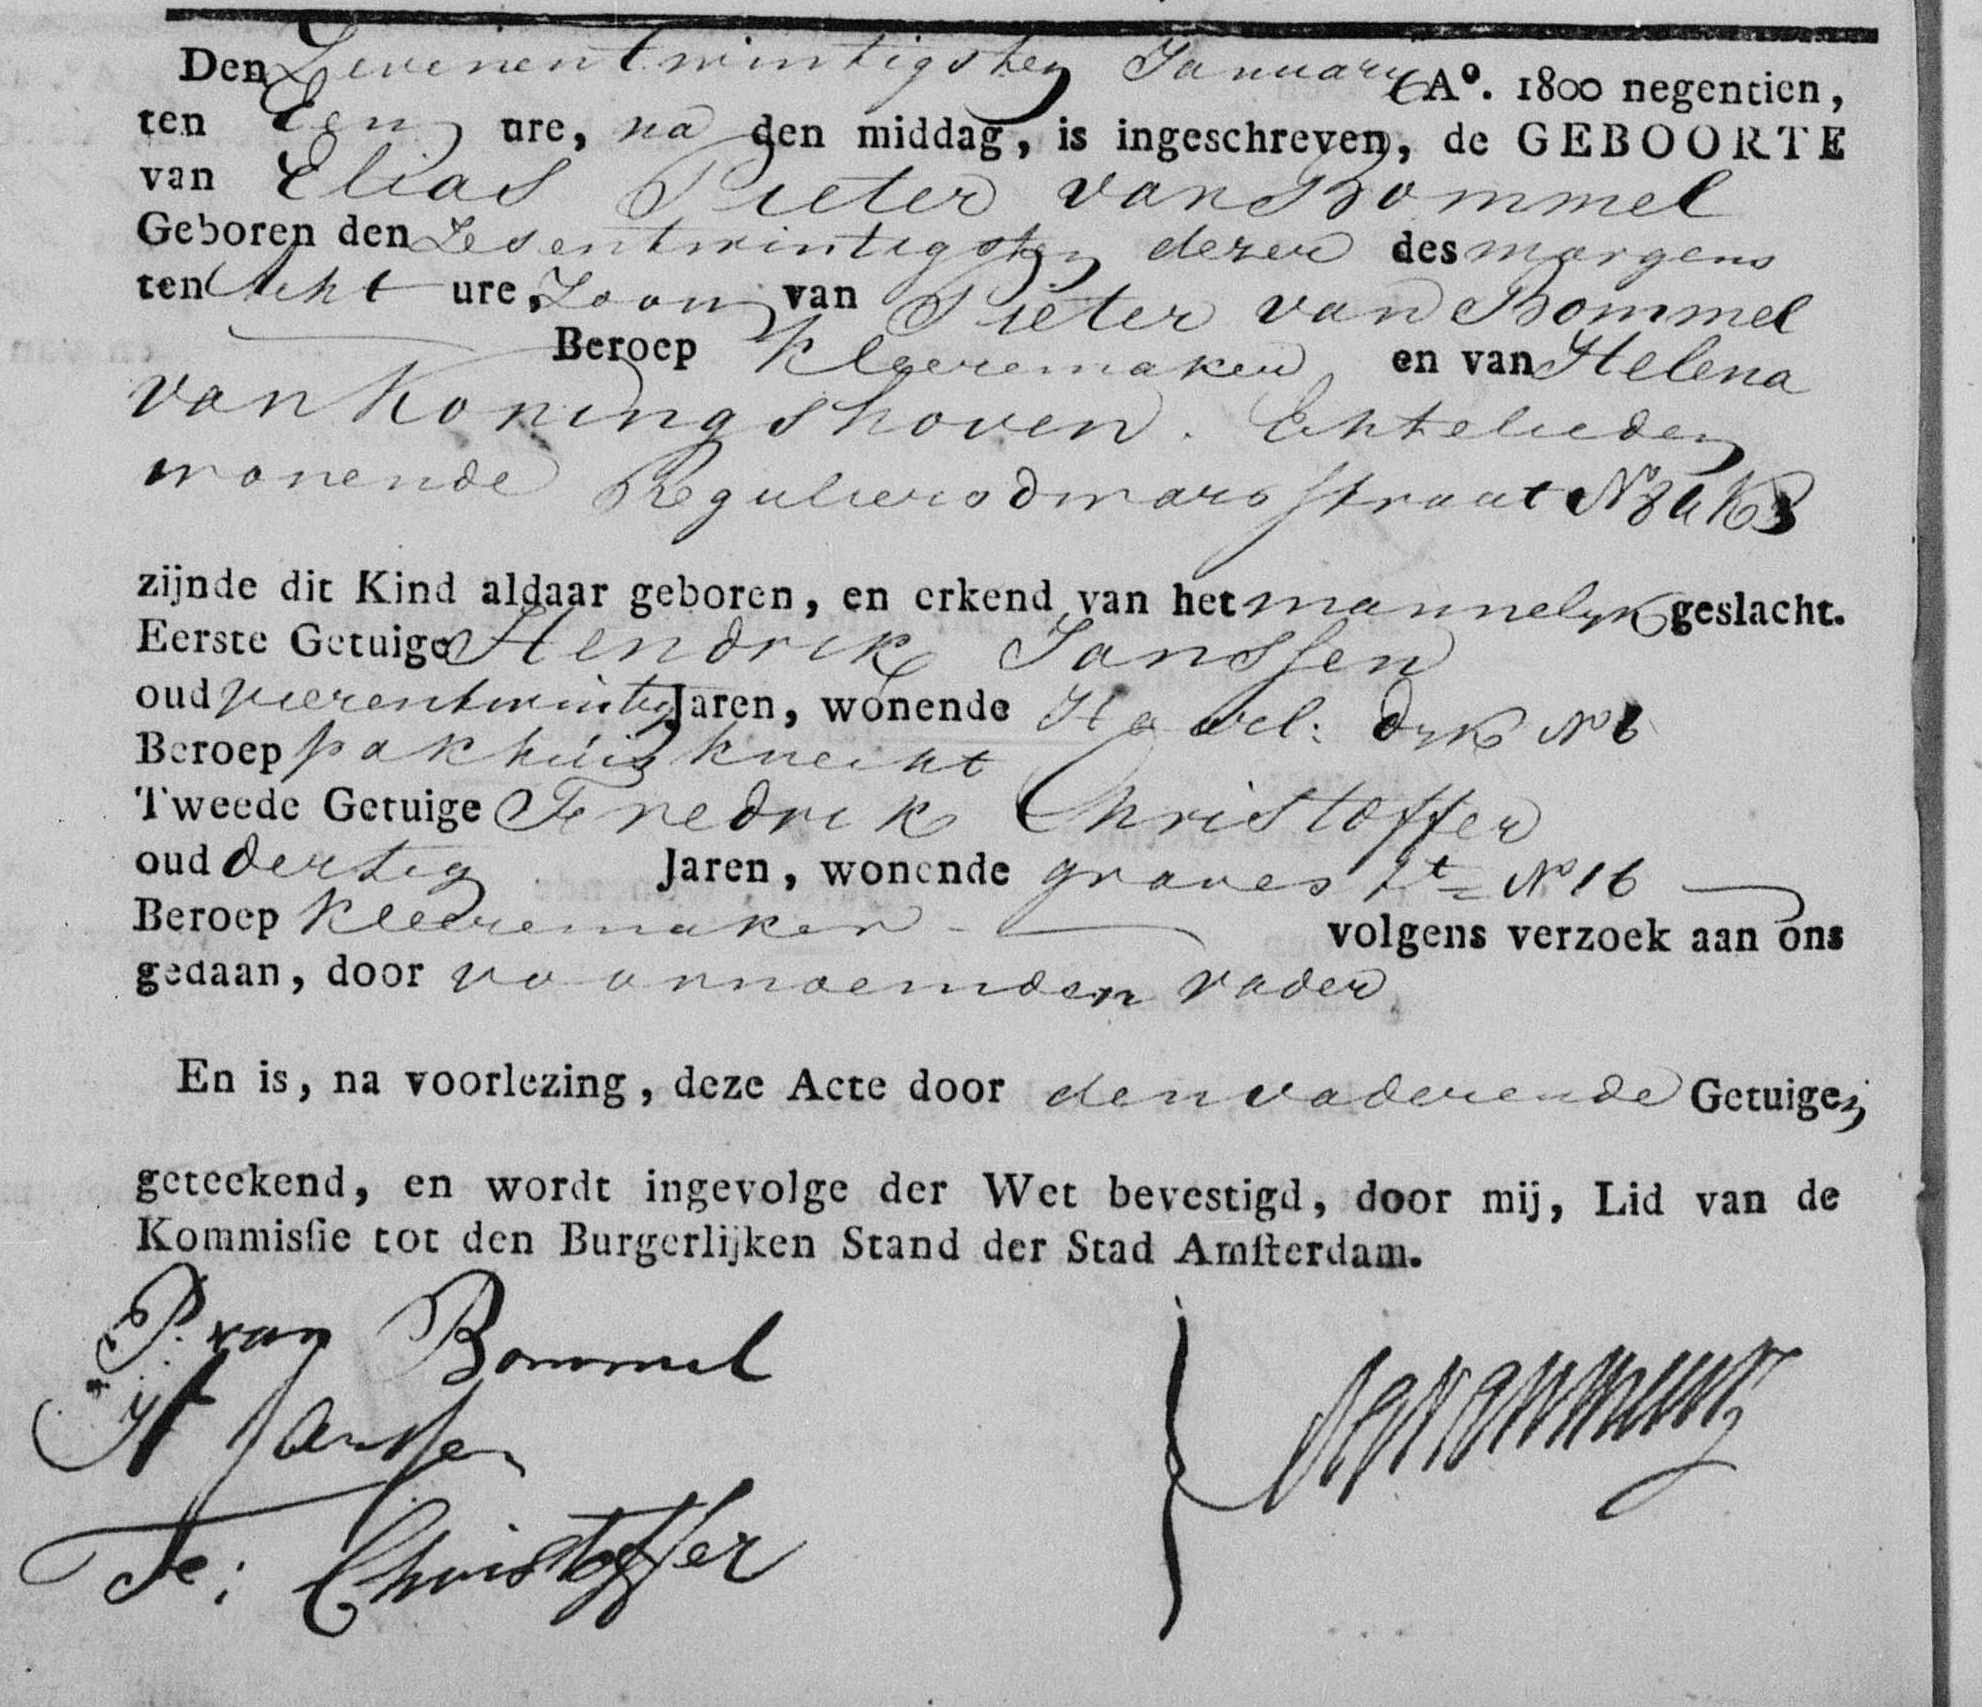 Den Zevenentwintigsten January Aº. 1800 negentien,
ten Een ure, na den middag, is ingeschreven, de GEBOORTE
van Elias Pieter van Bommel
Geboren den Zesentwintigsten dezer des morgens
ten Acht ure, Zoon van Pieter van Bommel
Beroep kleeremaker en van Helena
van Koningshoven. Echtelieden
wonende Reguliersdwarsstraat Nº
zijnde dit Kind aldaar geboren, en erkend van het mannelyk geslacht.
Eerste Getuige Hendrik Janssen
oud vierentwintig Jaren, wonende dyk Nº 6
Beroep pakhuisknecht
Tweede Getuige Fredrik Christoffer
oud dertig Jaren, wonende graves st Nº 16
Beroep kleeremaker volgens verzoek aan ons
gedaan, door voornoemden vader
En is, na voorlezing, deze Acte door den vader ende Getuigen
geteekend, en wordt ingevolge der Wet bevestigd, door mij, Lid van de
Kommisſie tot den Burgerlijken Stand der Stad Amſterdam.
P. van Bommel
H Janssen
Fe: Christoffer